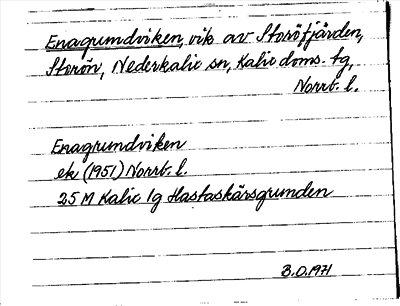 Enagrundviken, vik av Storöfjärden,
Storön, Nederkalix sn, Kalix doms. tg,
Norrb. l.
Enagrundviken
ek (1951) Norrb. l.
25 M Kalix lg Hastaskärsgrunden
B.O. 1971